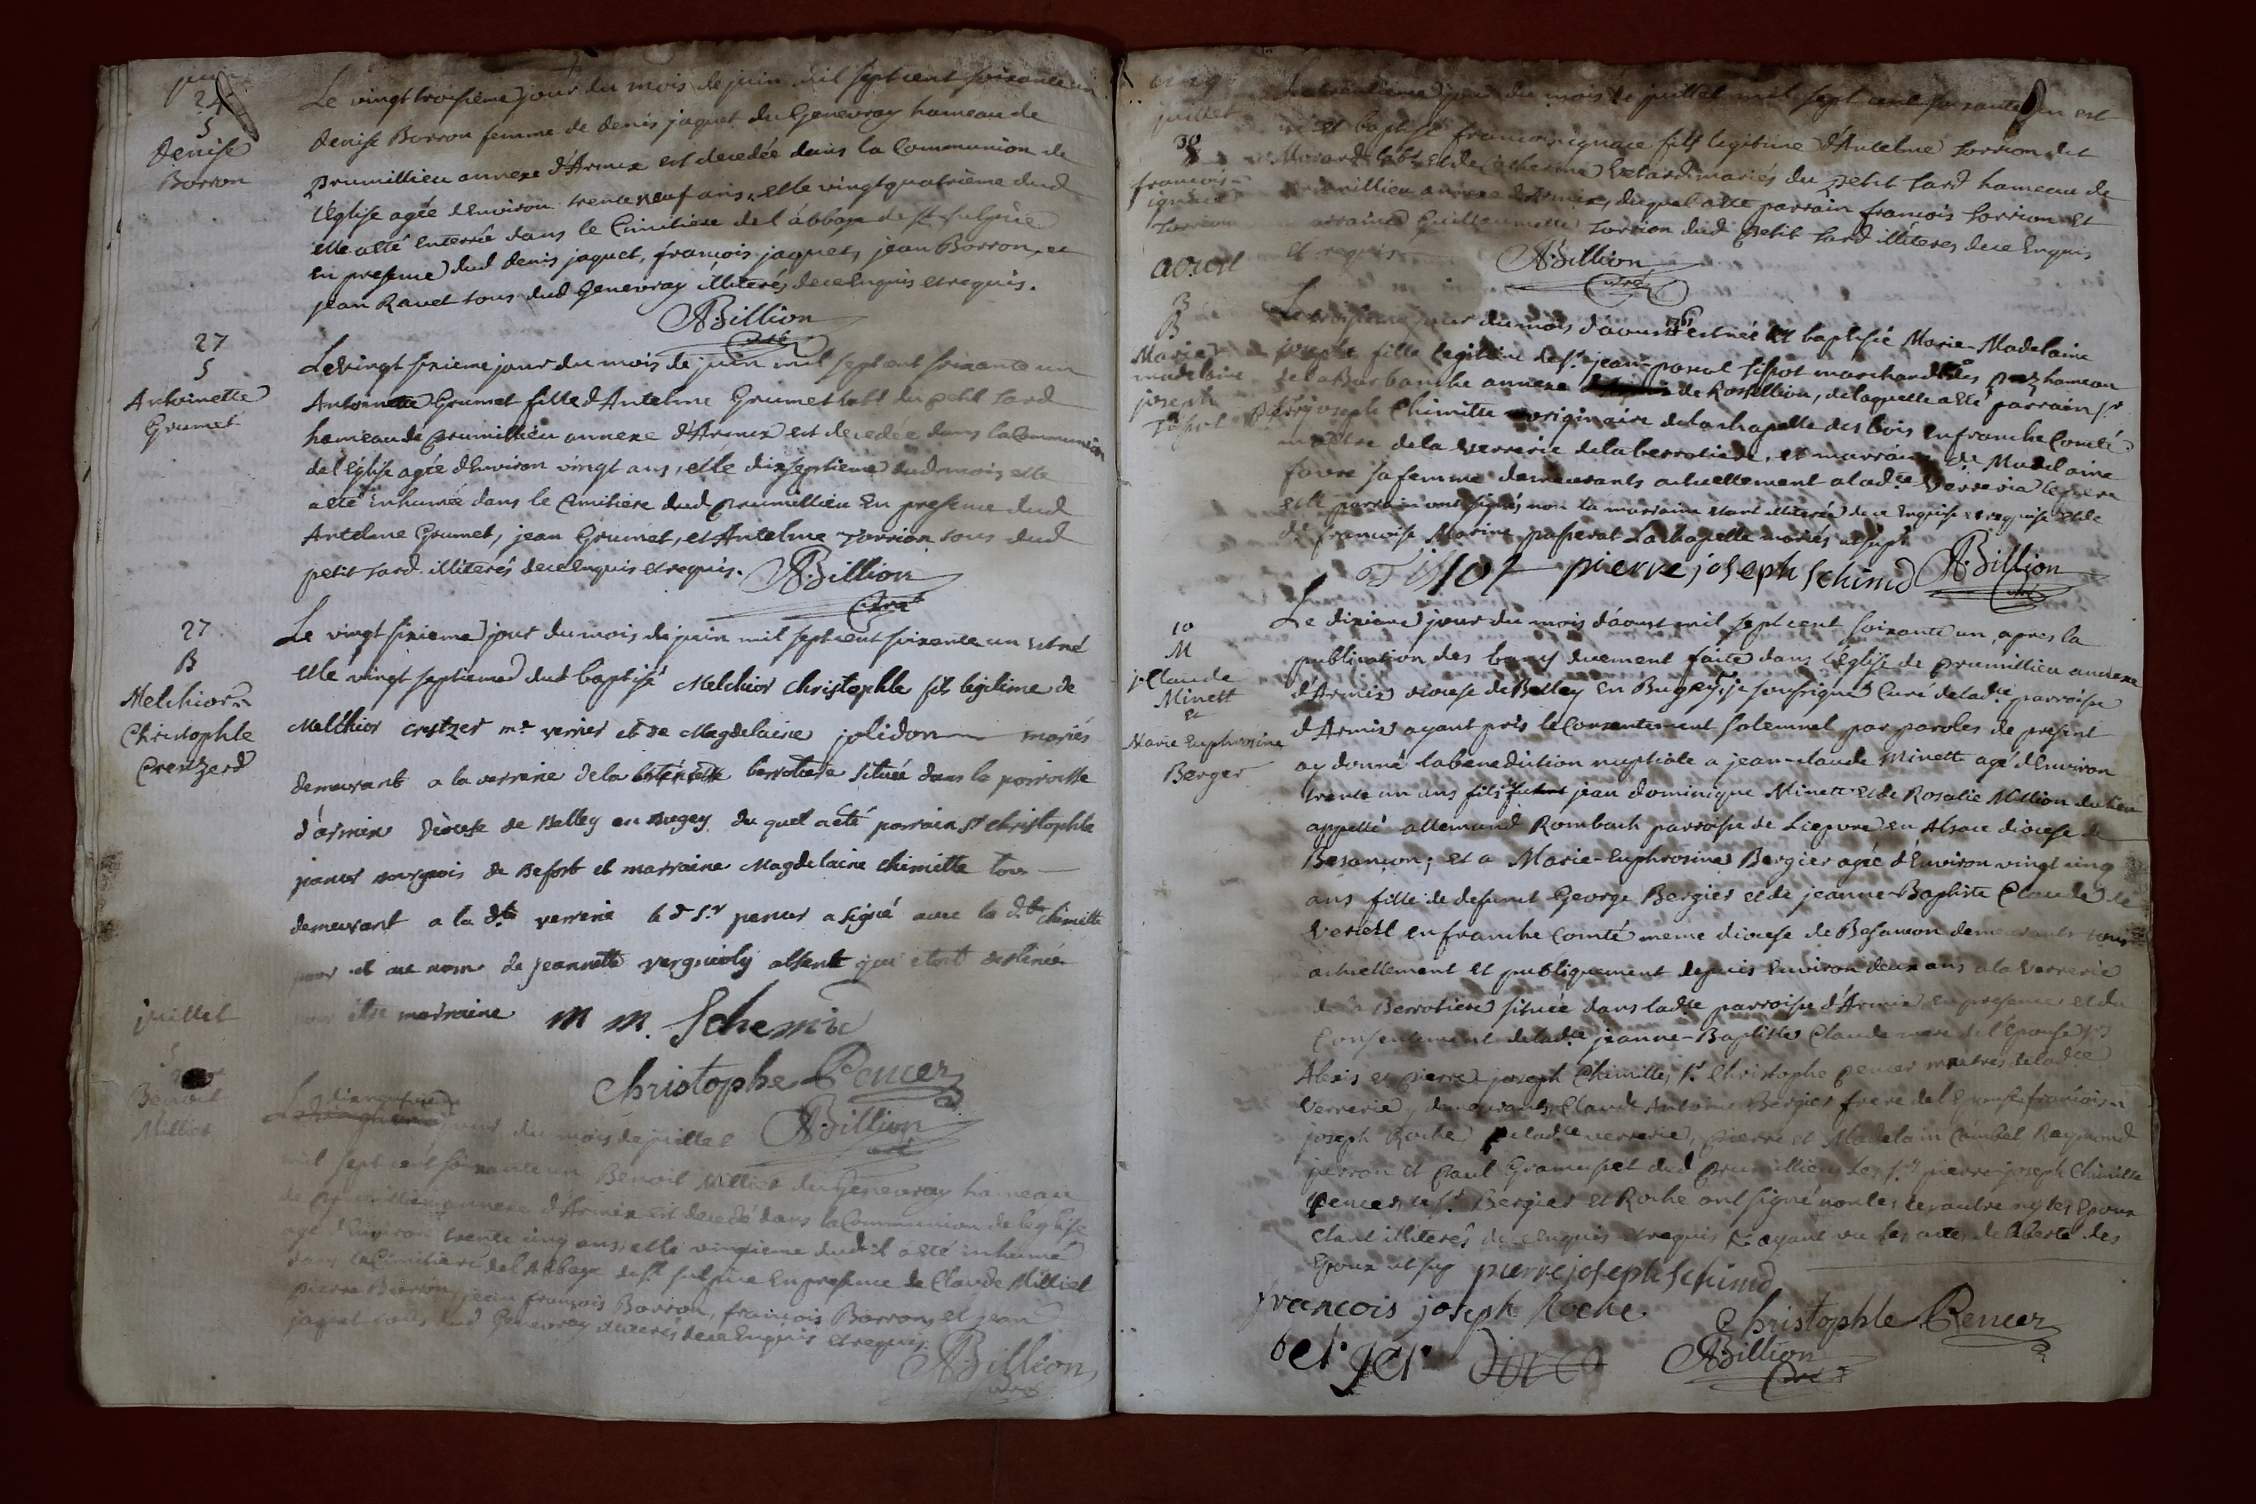 juin
24
S
Denise
Borron
Le vingt troisième jour du mois de juin mil sept cent soixante un
denise Borron femme de denis jaquet du Genevray hameau de
prumillieu annexe d'Armix est decedée dans la Communion de
l'Eglise agée d'Environ trente neuf ans, et le vingt quatrième dud
elle a été Enterrée dans le Cimitiere de l'abbaye de St Sulpice
En presence dud denis jaquet, françois jaquet, jean Borron, et
jean Ravet tous dud Genevray illiterés de ce Enquis et requis.
ABillion
curé
27
S
Antoinette
Grumet
Le vingt sixieme jour du mois de juin mil sept cent soixante un
Antoinette Grumet fille d'Antelme Grumet labr du petit tard
hameau de Prumillieu annexe d'Armix est decedée dans la Communion
de l'Eglise agée d'Environ vingt ans, et le vingt septieme dud mois elle
a été inhumée dans le Cimitiere dud Prumillieu En presence dud
Antelme Grumet, jean Grumet, et Antelme Torrion tous dud
petit tard illiterés de ce Enquis et requis.
ABillion
curé
27
B
Melchior
Christophle
Creuzerd
Le vingt sixieme jour du mois de juin mil sept cent soixante un est né
et le vingt septieme dud baptisé Melchior Christophle fils legitime de
Melchior creutzer me verrier et de Magdelaine jolidon mariés
demeurant a la verrerie de la berrotiere située dans la parroisse
d'armix Diocese de Belley en Bugey du quel a été parrain Sr christophle
pencer bourgeois de Befort et marraine Magdelaine chimitte tous
demeurant a la dte verrerie le d Sr pencer a signé avec la dte chimitte
pour et au nom de jeannette absente qui etoit destinée
pour être marraine
M M. Schemit
Christophe Pencer
ABillion
curé
juillet
Benoit
Milliet
Le dixneufieme jour du mois de juillet
mil sept cent soixante un Benoit Milliet du Genevray hameau
de Prumillieu annexe d'Armix est decedé dans la Communion de l'eglise
agé d'Environ trente cinq ans, et le vingtieme dud il a été inhumé
dans le Cimitiere de l'Abbaye de St Sulpice En presence de Claude Milliet
pierre Borron, jean françois Borron, françois Borron, et jean
jaquet tous dud Genevray illiterés de ce Enquis et requis.
ABillion
curé
cinq
juillet
30
B
francois
ignace
Torrion
Le trentieme jour du mois de juillet mil sept cent soixante un est
né et baptisé francois ignace fils legitime d'Antelme Torrion dit
labr et de Catherine mariés du petit tard hameau de
prumillieu annexe d'Armix, duquel a été parrain françois Torrion et
marraine Guillaumette Torrion dud petit tard illiteres de ce Enquis
et requis
ABillion
curé
aoust
B
Marie
madelaine
joseph
Tissot
Le troisieme jour du mois d'aoust 1761 est née et baptisée Marie-Madelaine
joseph fille legitime de Sr jean-pascal Tissot marchand des hameau
de la Burbanche annexe de Rossillion, de laquelle a été parrain Sr
pierre joseph Chimitte originaire de la chapelle des bois en franche Comté
maître de la verrerie de la berrotiere, et marraine De Madelaine
favre sa femme demeurants actuellement a lade verrerie le pere
et le parrain ont signés non la marraine etant illiterée de ce Enquise et requise et de
De françoise Marine passerat Lachapelle mariés
Tissot pierre joseph schimid ABillion
curé
10
M
j. Claude
Minett
et
Marie Euphrosine
Berger
Le dixieme jour du mois d'aoust mil sept cent soixante un, apres la
publication des bancs duement faite dans l'Eglise de prumillieu annexe
d'Armix diocese de Belley En Bugey, je soussigné Curé de lad.e parroisse
d'Armix ayant pris le Consentement solemnel par paroles de present
ay donné la benediction nuptiale a jean-claude Minett agé d'Environ
trente un ans fils jean dominique Minett et de Rosalie Million du lieu
appellé allemand Rombach parroisse de Liepvre en Alsace diocese de
Besançon; et a Marie-Euphrosine Bergier agée d'Environ vingt cinq
ans fille de defunt George Bergier et de jeanne-Baptiste Claude de
en franche Comté meme diocese de Besançon demeurants tous
actuellement et publiquement depuis Environ deux ans a la Verrerie
de la Berrotiere située dans lad.e parroisse d'Armix en presence et du
Consentement de lad.e jeanne-Baptiste Claude mere de l'Epouse, Srs
Alexis et pierre-joseph Chimitte, Sr Christophe pencer maitres de lad.e
Verrerie y demeurants, Claude Antoine Bergier frere de l'Epouse, françois
joseph Roche de lad.e verrerie, pierre et Madelain Raymond
perron et Paul dud prumillieu Les Srs pierre-joseph Chimitte
Pencer, Bergier et Roche ont signé non les autres ny les Epoux
etant illiterés de ce enquis et requis ayant vu les actes de liberté des
Epoux
pierre joseph Schimid
françois joseph Roche.
Christophle Pencer
berger
ABillion
curé